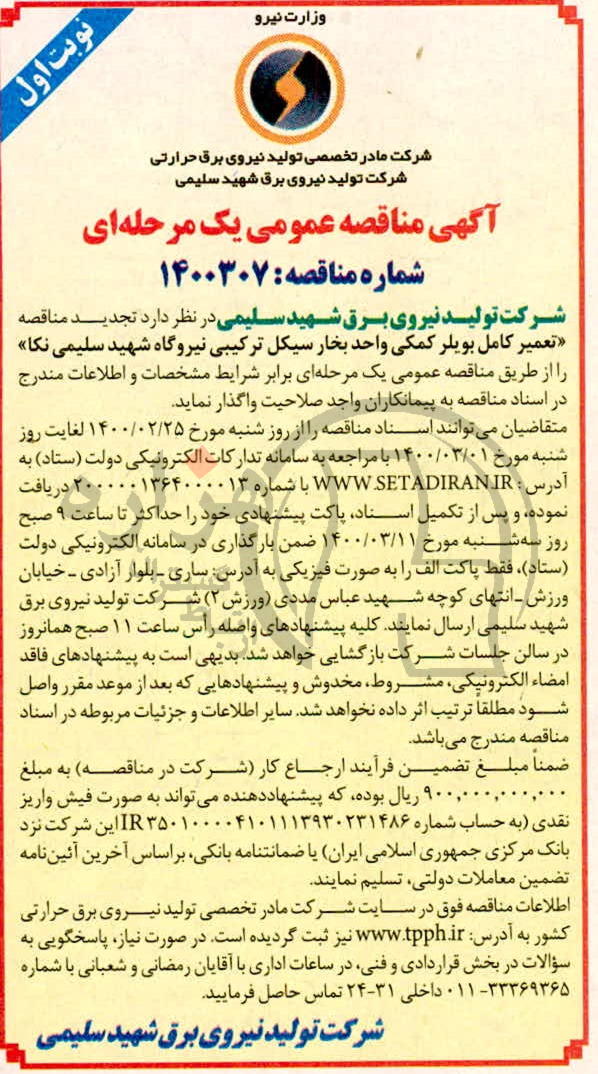 وزارت نیرو
نوبت اول
شرکت مادر تخصصی تولید نیروی برق حرارتی
شرکت تولید نیروی برق شهید سلیمی
آگهی مناقصه عمومی یک مرحله‌ای
شماره مناقصه: ۱۴۰۰۳۰۷
شرکت تولید نیروی برق شهید سلیمی در نظر دارد تجدید مناقصه
«تعمیر کامل بویلر کمکی واحد بخار سیکل ترکیبی نیروگاه شهید سلیمی نکا»
را از طریق مناقصه عمومی یک مرحله‌ای برابر شرایط مشخصات و اطلاعات مندرج
در اسناد مناقصه به پیمانکاران واجد صلاحیت واگذار نماید.
متقاضیان می‌توانند اسناد مناقصه را از روز شنبه مورخ ۱۴۰۰/۰۲/۲۵ لغایت روز
شنبه مورخ ۱۴۰۰/۰۳/۰۱ با مراجعه به سامانه تدارکات الکترونیکی دولت (ستاد) به
آدرس: WWW.SETADIRAN.IR با شماره ۲۰۰۰۰۰۱۳۶۴۰۰۰۰۱۳ دریافت
نموده، و پس از تکمیل اسناد، پاکت پیشنهادی خود را حداکثر تا ساعت ۹ صبح
روز سه‌شنبه مورخ ۱۴۰۰/۰۳/۱۱ ضمن بارگذاری در سامانه الکترونیکی دولت
(ستاد)، فقط پاکت الف را به صورت فیزیکی به آدرس: ساری ـ بلوار آزادی ـ خیابان
ورزش ـ انتهای کوچه شهید عباس مددی (ورزش ۲) شرکت تولید نیروی برق
شهید سلیمی ارسال نمایند. کلیه پیشنهادهای واصله رأس ساعت ۱۱ صبح همانروز
در سالن جلسات شرکت بازگشایی خواهد شد. بدیهی است به پیشنهادهای فاقد
امضاء الکترونیکی، مشروط، مخدوش و پیشنهادهایی که بعد از موعد مقرر واصل
شود مطلقاً ترتیب اثر داده نخواهد شد. سایر اطلاعات و جزئیات مربوطه در اسناد
مناقصه مندرج می‌باشد.
ضمناً مبلغ تضمین فرآیند ارجاع کار (شرکت در مناقصه) به مبلغ
۹۰۰,۰۰۰,۰۰۰,۰۰۰ ریال بوده، که پیشنهاددهنده می‌تواند به صورت فیش واریز
نقدی (به حساب شماره IR۳۵۰۱۰۰۰۰۴۱۰۱۱۱۳۹۳۰۲۳۱۴۸۶ این شرکت نزد
بانک مرکزی جمهوری اسلامی ایران) یا ضمانتنامه بانکی، براساس آخرین آئین‌نامه
تضمین معاملات دولتی، تسلیم نمایند.
اطلاعات مناقصه فوق در سایت شرکت مادر تخصصی تولید نیروی برق حرارتی
کشور به آدرس: www.tpph.ir نیز ثبت گردیده است. در صورت نیاز، پاسخگویی به
سؤالات در بخش قراردادی و فنی، در ساعات اداری با آقایان رمضانی و شعبانی با شماره
۳۳۳۶۹۳۶۵-۰۱۱ داخلی ۳۱-۲۴ تماس حاصل فرمایید.
شرکت تولید نیروی برق شهید سلیمی